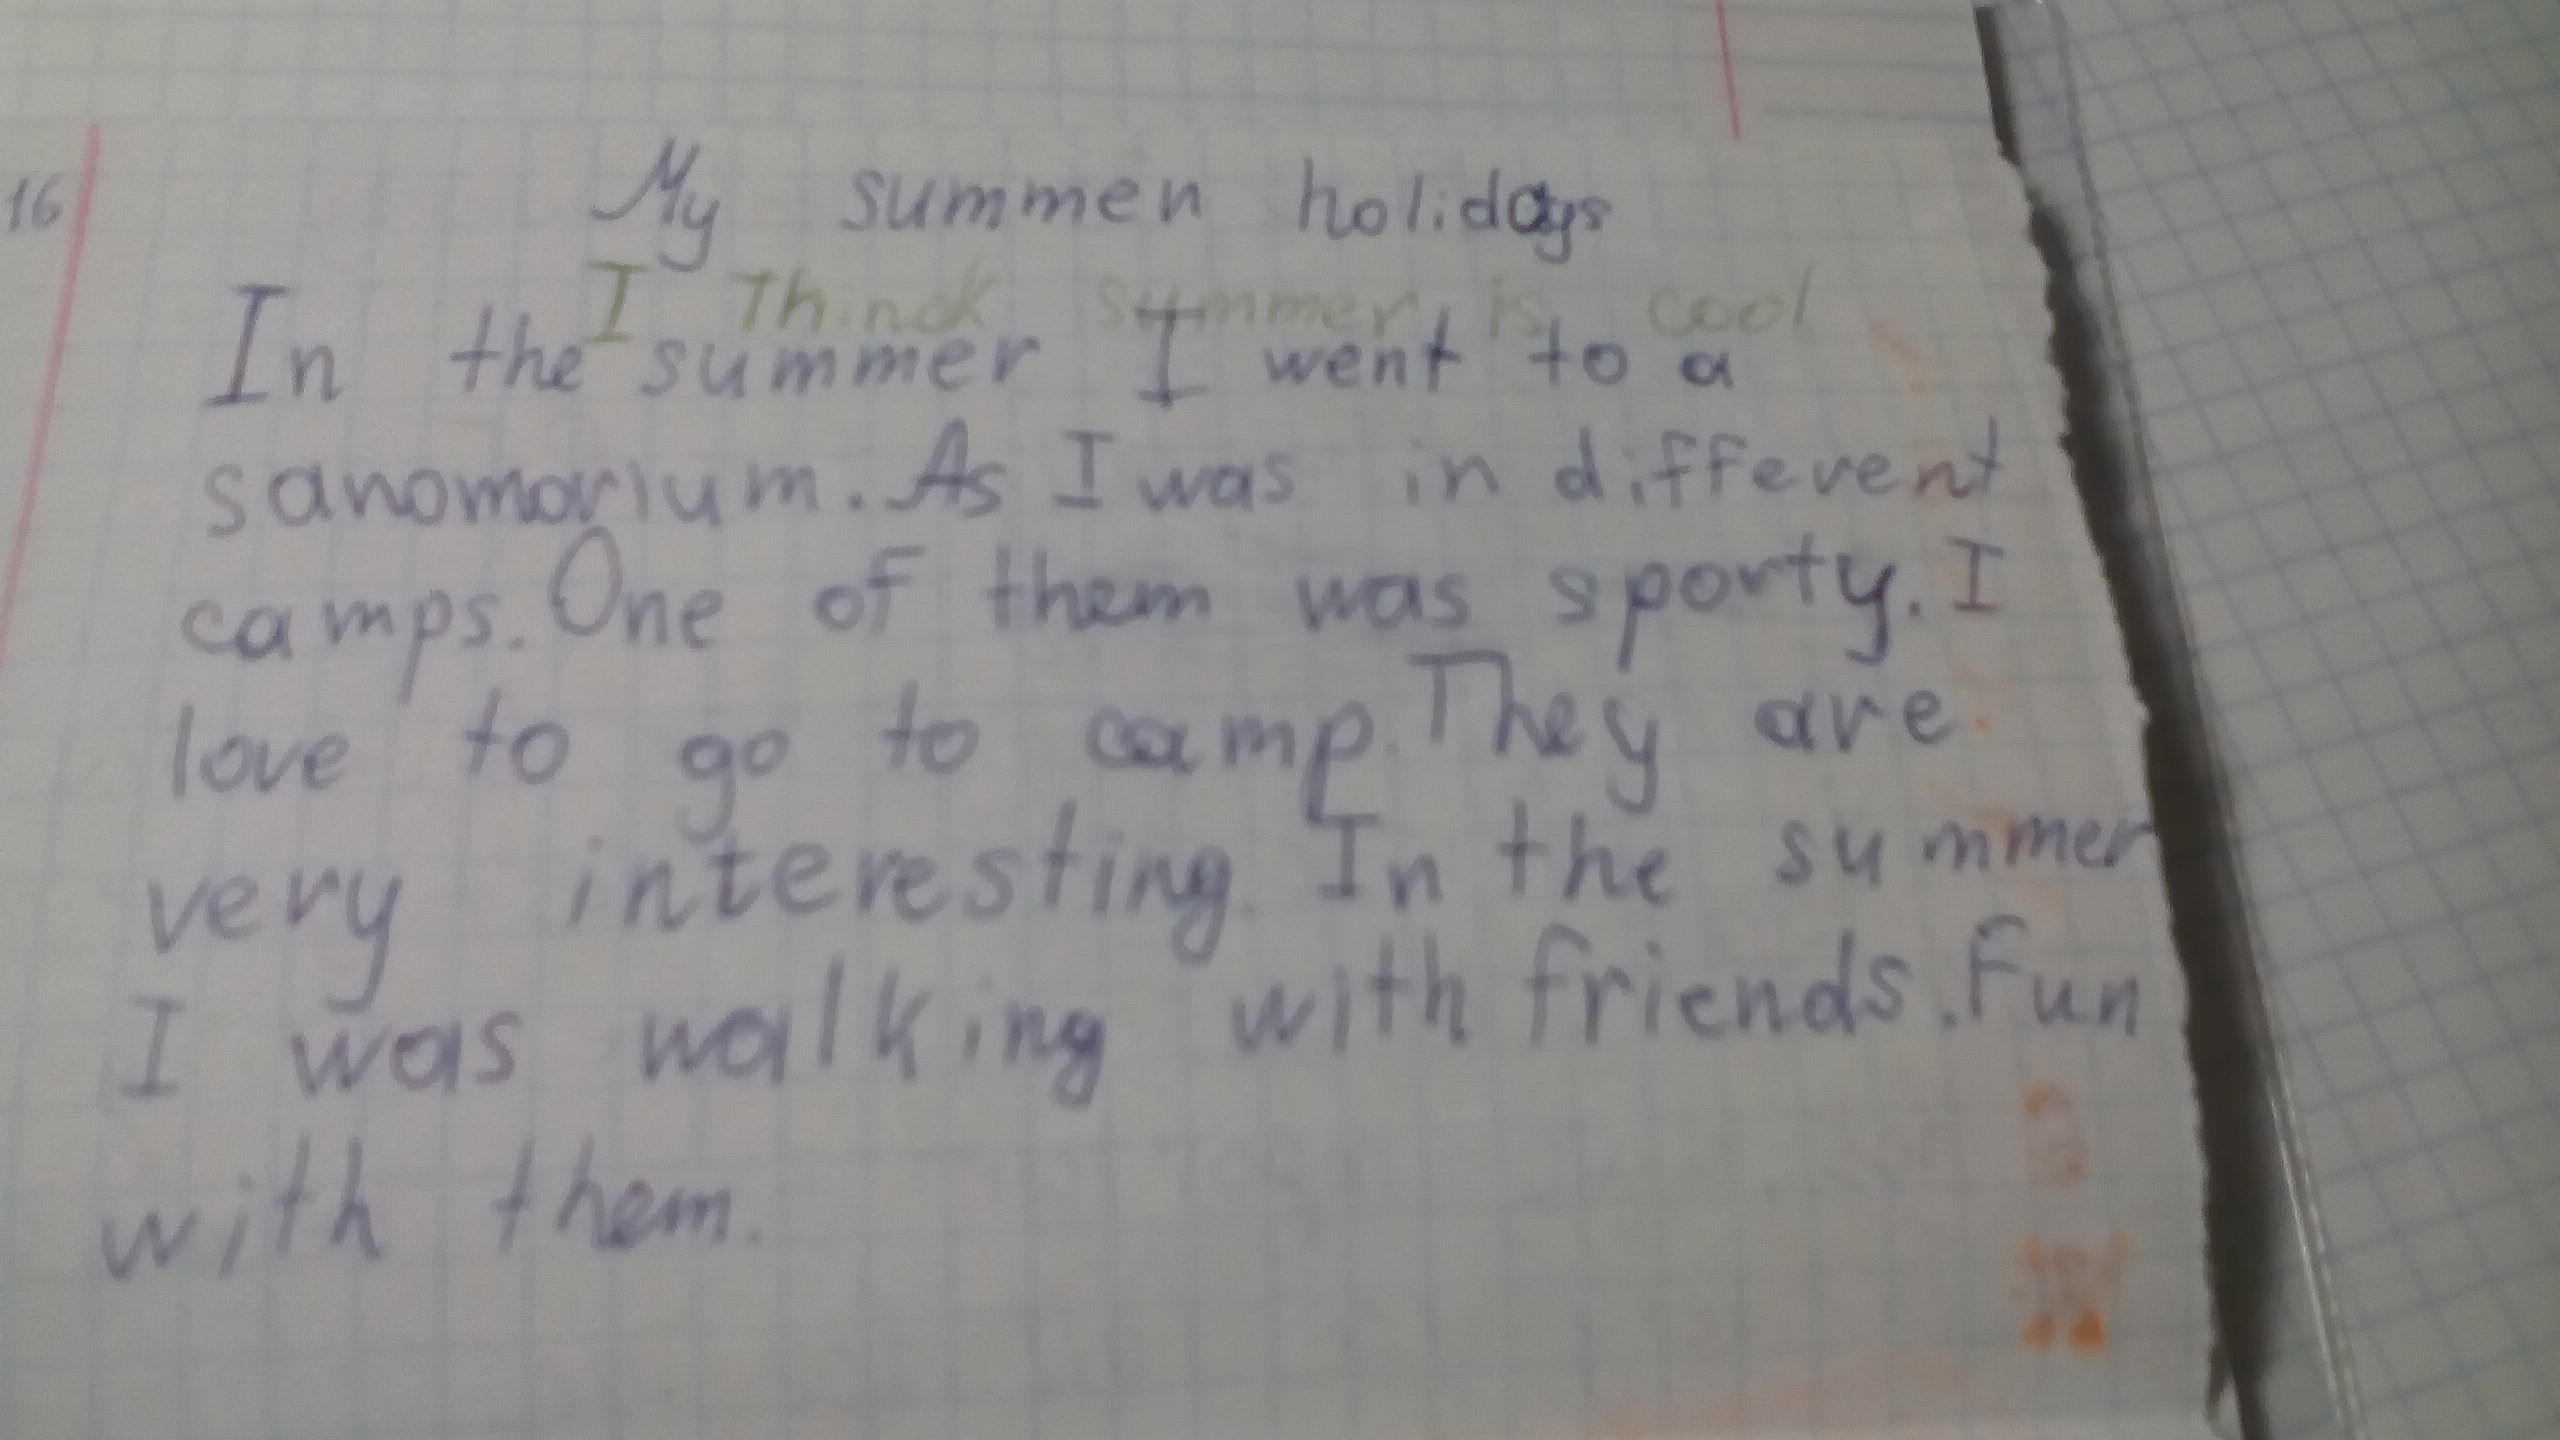 16
My summen holidays
I Thinck summer is cool
In the summer I went to a
sanomorium. As I was in different
camps. One of them was sporty. I
love to go to camp. They are
very interesting. In the summer
I was walking with friends. Fun
with them.